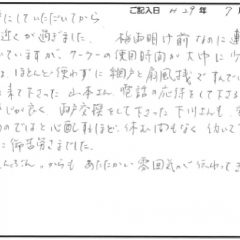 ご記入日 H29年 7
にしていただいてから
近くが過ぎました. 梅雨明け前なのに
ていますが、クーラーの使用時間が大巾に少
は、ほとんど使わずに 網戸と扇風機ですんでい
来て下さった 山本さん、電話の応待をして下さる
じが良く 雨戸交換をして下さった 下川さんも
のではと心配するほど、休む間もなく 動いて
に御苦労さまでした。
からも あたたかい 雰囲気が 伝わってき